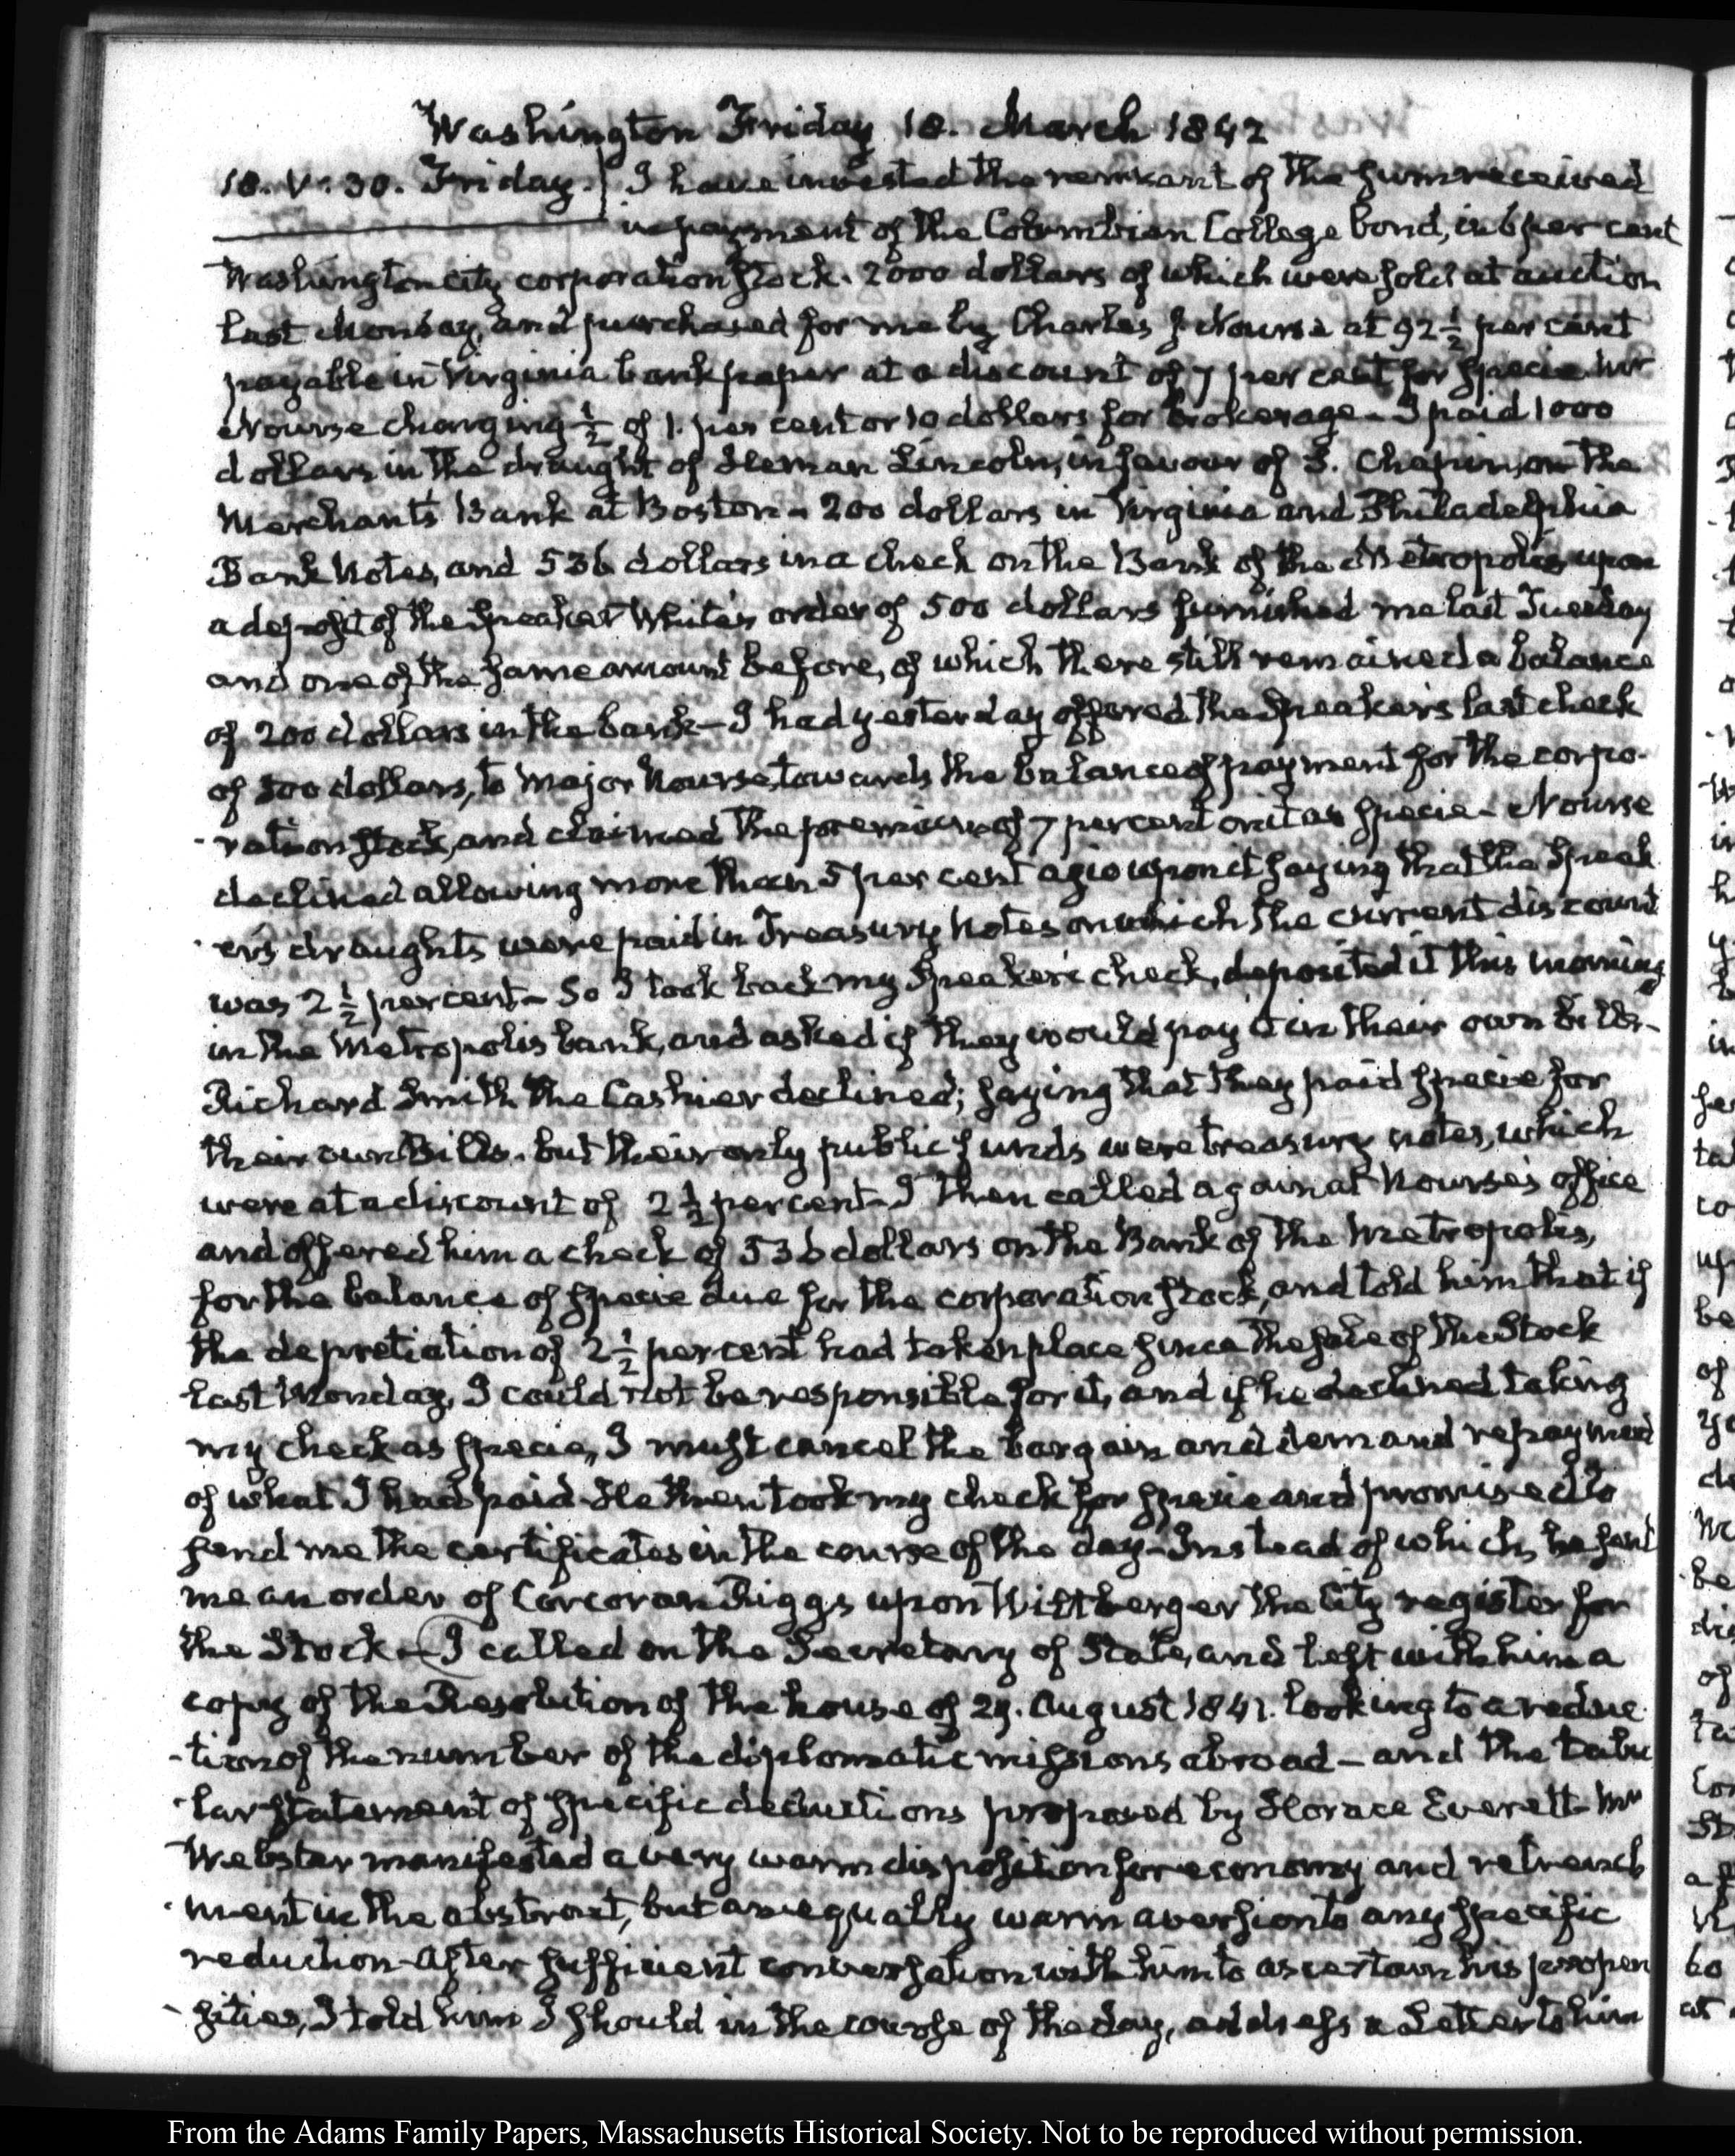 Washington Friday 18. March 1842
18. V: 30. Friday. I have invested the remnant of the sum received
in payment of the Columbian College bond, in 6 per cent
Washington city corporation stock. 2000 dollars of which were sold at auction
last Monday, and purchased for me by Charles J Nourse at 92 1/2 per cent
payable in Virginia bank paper at a discount of 7 per cent for specie. Mr
Nourse charging 1/2 of 1. per cent or 10 dollars for brokerage – I paid 1000
dollars in the draught of Heman Lincoln, in favour of S. Chapin, on the
Merchants Bank at Boston – 200 dollars in Virginia and Philadelphia
Bank Notes, and 536 dollars in a check on the Bank of the Metropolis upon
a deposit of the Speaker White's order of 500 dollars furnished me last Tuesday
and one of the same amount before, of which there still remained a balance
of 200 dollars in the bank – I had yesterday offered the Speaker's last check
of 500 dollars, to Major Nourse, towards the balance of payment for the corpo-
-ration stock, and claimed the premium of 7 per cent on it as specie – Nourse
declined allowing more than 5 per cent agio upon it saying that the Speak
-er's draughts were paid in Treasury Notes on which the current discount
was 2 1/2 per cent – So I took back my Speaker's check, deposited it this morning
in the Metropolis bank, and asked if they would pay it in their own bills –
Richard Smith the Cashier declined; saying that they paid specie for
their own Bills. but their only public funds were treasury notes, which
were at a discount of 2 1/2 per cent – I then called again at Nourse's office
and offered him a check of 536 dollars on the Bank of the Metropolis,
for the balance of specie due for the corporation stock, and told him that if
the depretiation of 2 1/2 per cent had taken place since the sale of the Stock
last Monday, I could not be responsible for it, and if he declined taking
my check as specie, I must cancel the bargain and demand repayment
of what I had paid – He then took my check for specie and promised to
send me the certificates in the course of the day – Instead of which, he sent
me an order of Corcoran Riggs upon Wiltberger the City register for
the Stock – I called on the Secretary of State, and left with him a
copy of the Resolution of the house of 29. August 1841. looking to a reduc
-tion of the number of the diplomatic missions abroad – and the tabu
-lar statement of specific deductions proposed by Horace Everett – Mr
Webster manifested a very warm disposition for economy and retrench
-ment in the abstract, but an equally warm aversion to any specific
reduction – After sufficient conversation with him to ascertain his propen
-sities, I told him I should in the course of the day, address a Letter to him
From the Adams Family Papers, Massachusetts Historical Society. Not to be reproduced without permission.